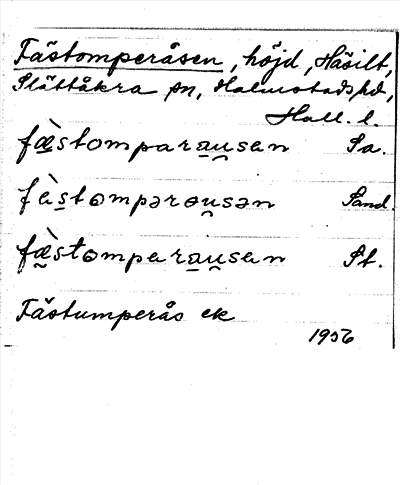 Fästomperåsen, höjd, Häsilt,
Slättåkra sn, Halmstads hd,
Hall. l.
fæ̀stomparau̯san Sa.
fès̱tompərəu̯sən Sand.
fæ̀stomparau̯san St.
Fästumperås ek
1956